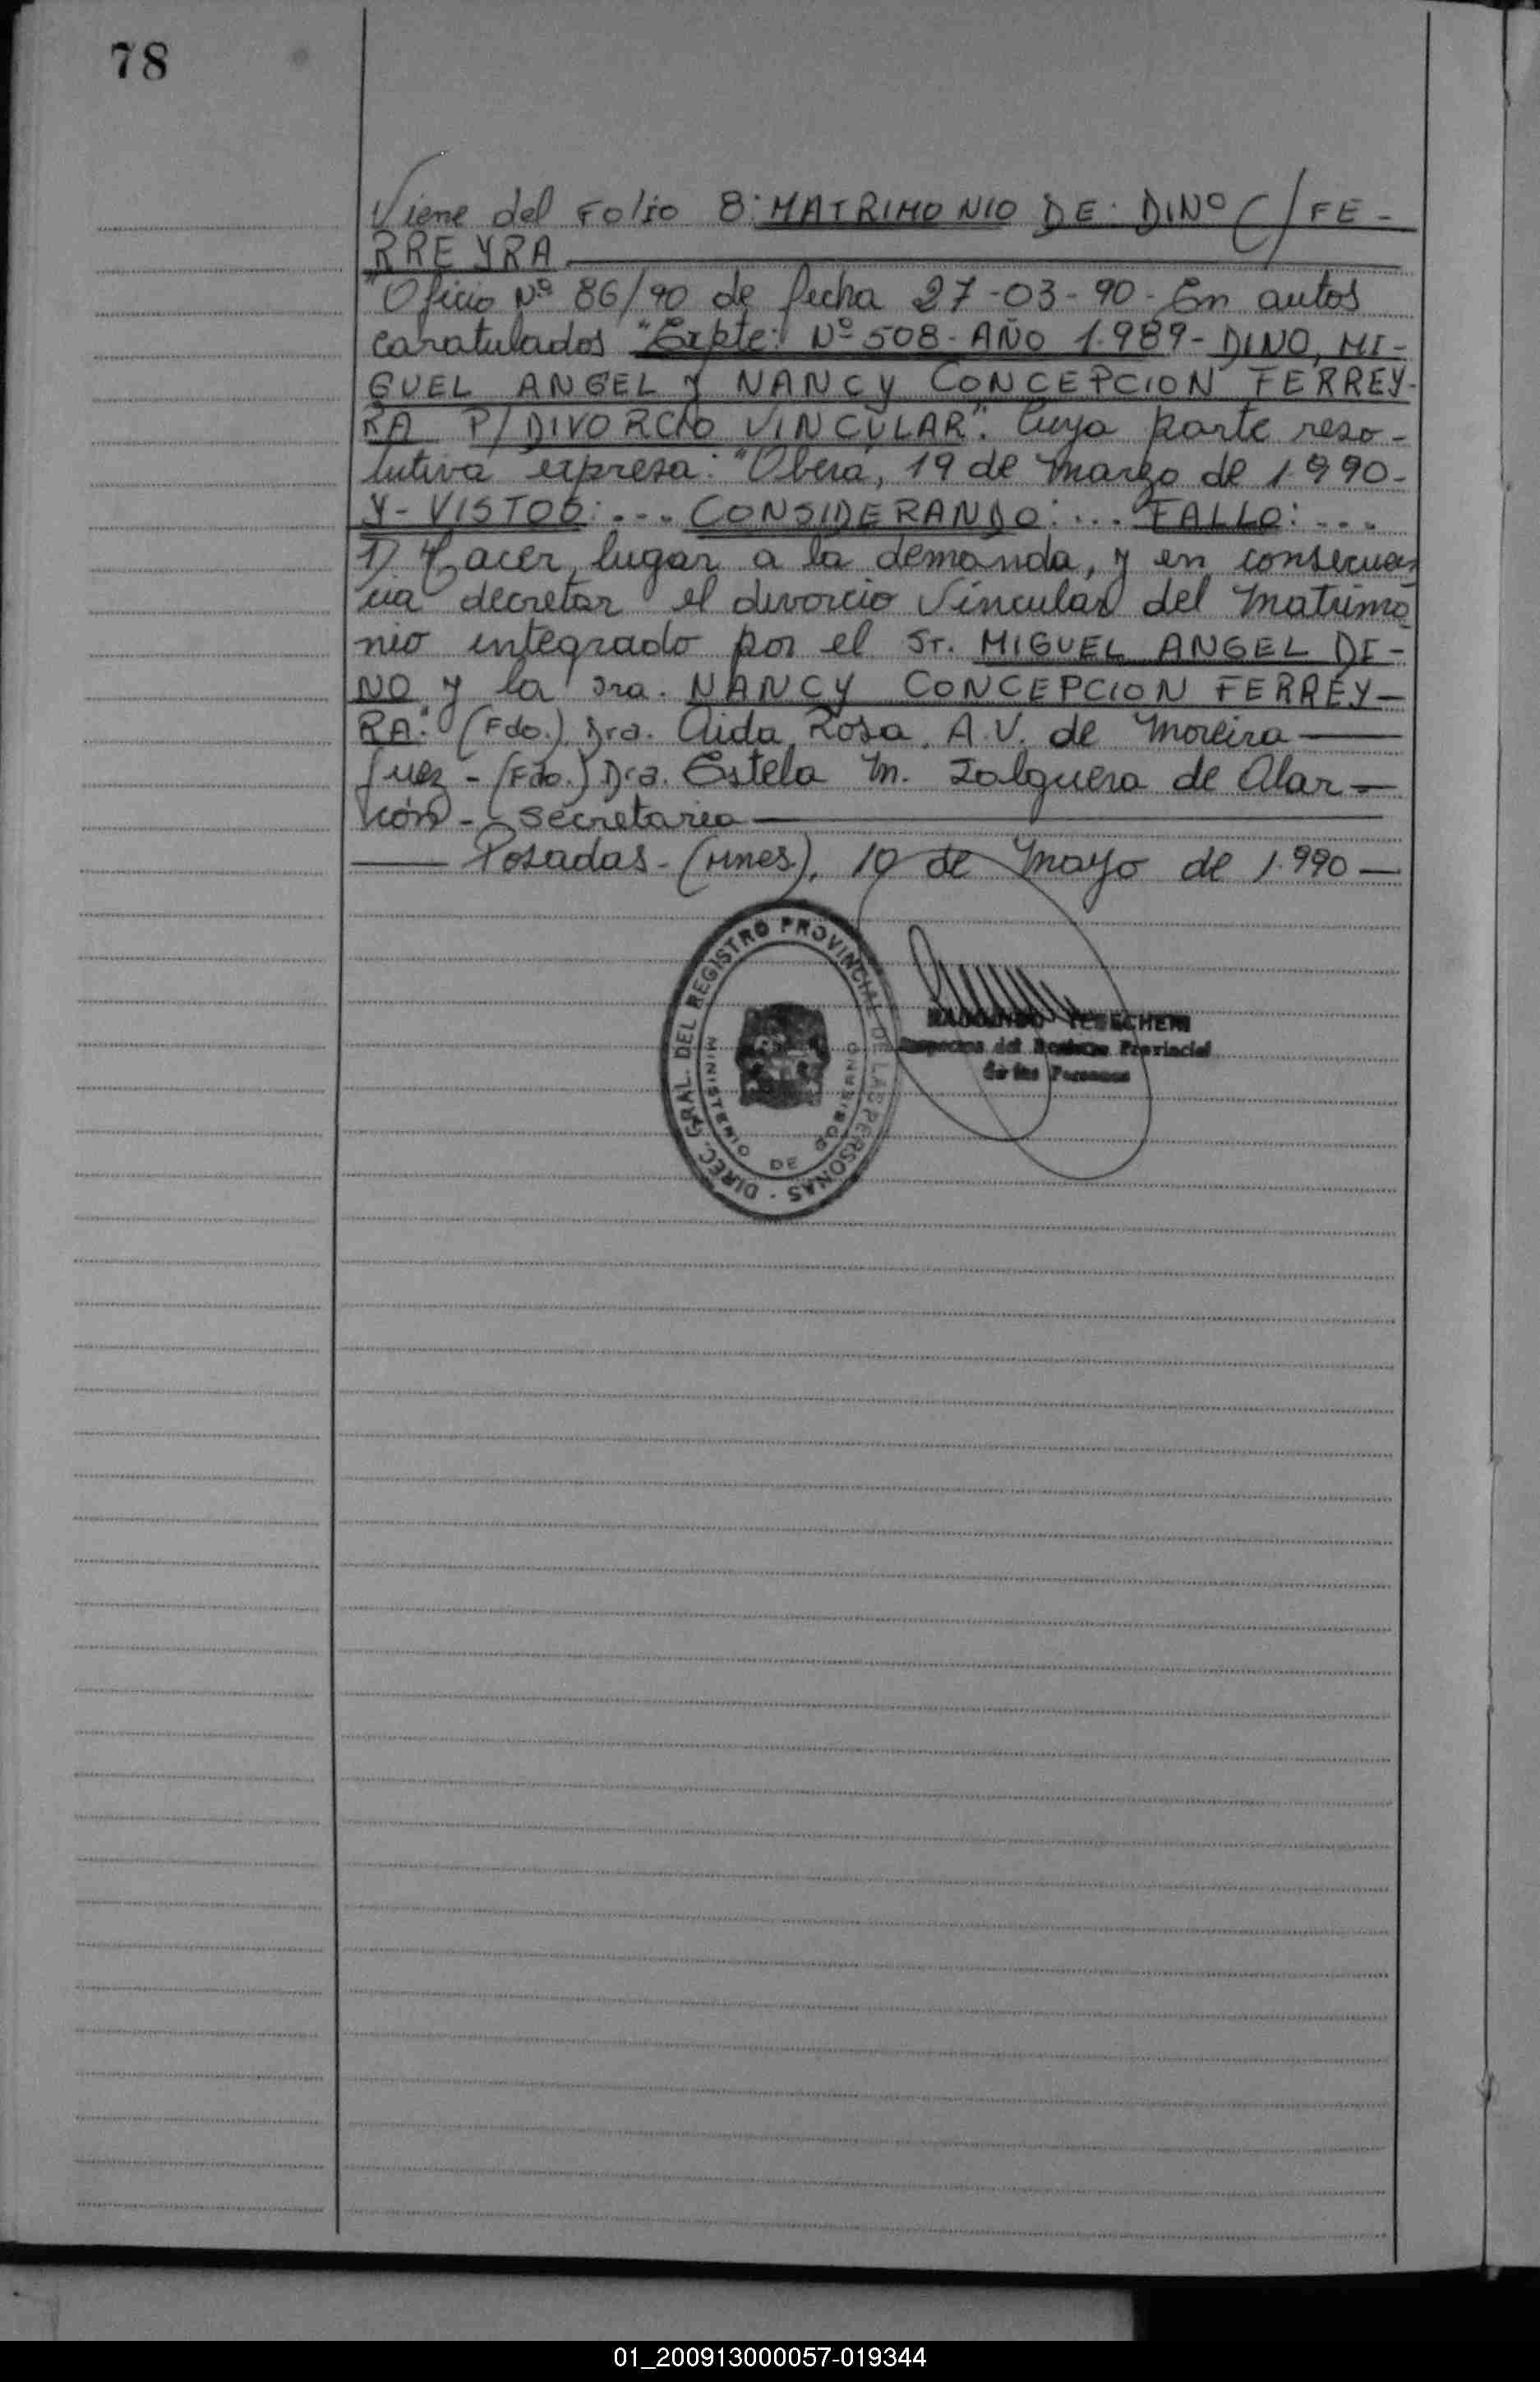 78
Viene del Folio 8: MATRIMONIO DE: DINO C/ FE-
RREYRA
"Oficio Nº 86/90 de fecha 27-03-90- En autos
caratulados "Expte: Nº 508- AÑO 1.989- DINO, MI-
GUEL ANGEL y NANCY CONCEPCION FERREY-
RA P/ DIVORCIO VINCULAR". Cuya parte reso-
lutiva expresa: "Oberá, 19 de marzo de 1.990-
Y- VISTOS:... CONSIDERANDO:... FALLO:...
1) Hacer lugar a la demanda, y en consecuen
cia decretar el divorcio Vincular del matrimo
nio integrado por el Sr. MIGUEL ANGEL DI-
NO y la sra. NANCY CONCEPCION FERREY-
RA". (Fdo.) Dra. Aida Rosa A.V. de Moreira
Juez - (Fdo.) Dra. Estela M. de Alar-
cón - Secretaria
Posadas - (Mnes), 10 de Mayo de 1.990
DIREC. GRAL. DEL REGISTRO PROVINCIAL DE LAS PERSONAS -
MINISTERIO DE GOBIERNO
del Registro Provincial
de las Personas
01_200913000057-019344